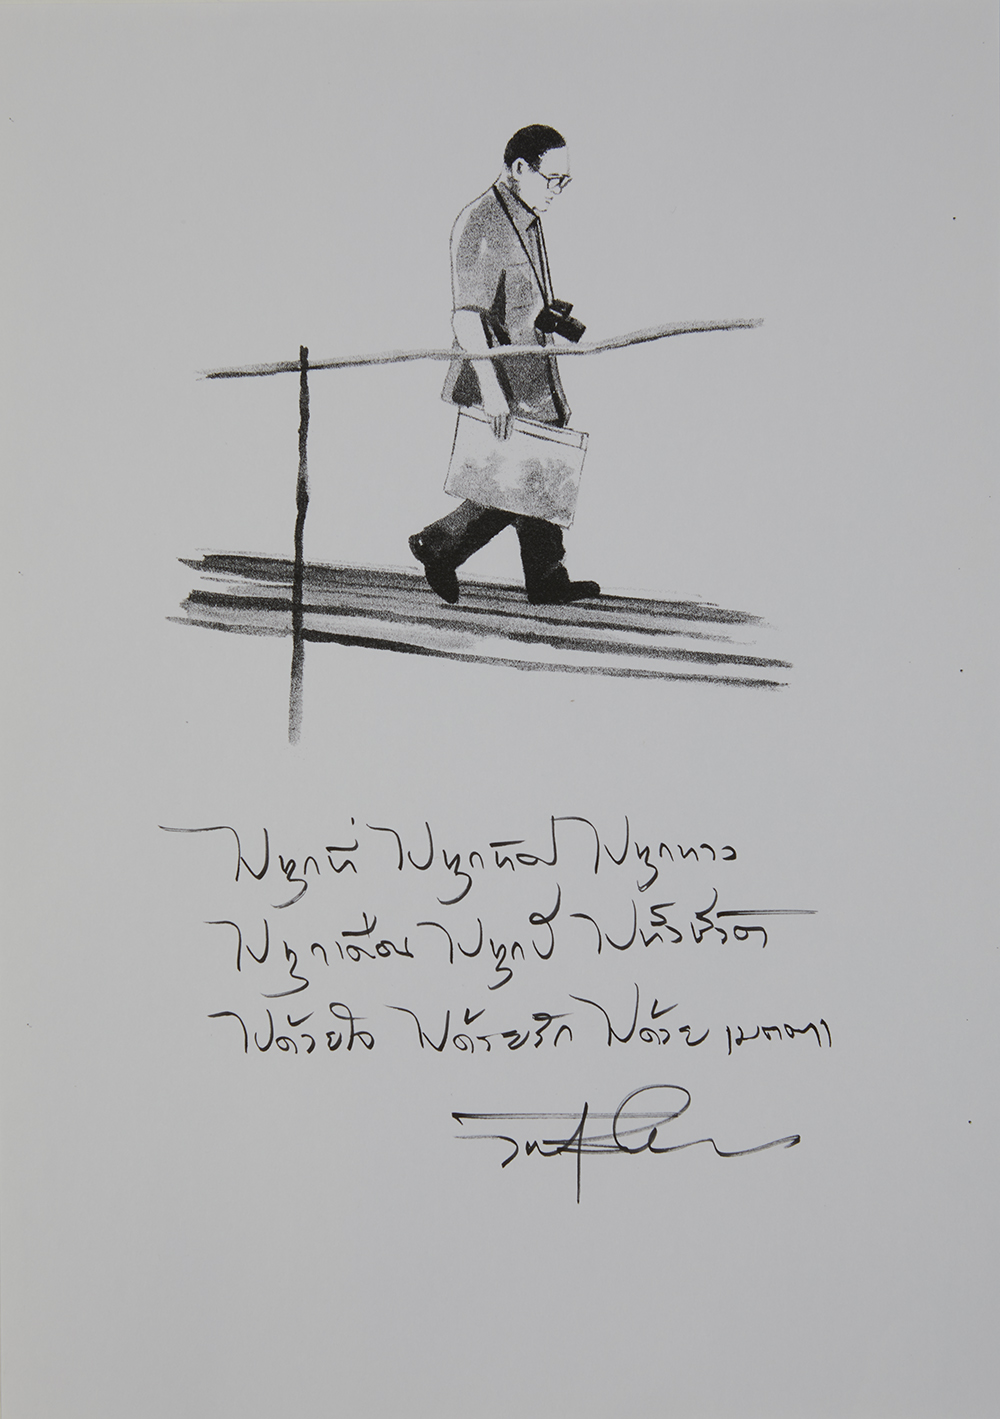 ไปทุกที่ ไปทุกทิศ ไปทุกทาง
ไปทุกเดือน ไปทุกปี ไปทั่วชีวิต
ไปด้วยใจ ไปด้วยรัก ไปด้วยเมตตา